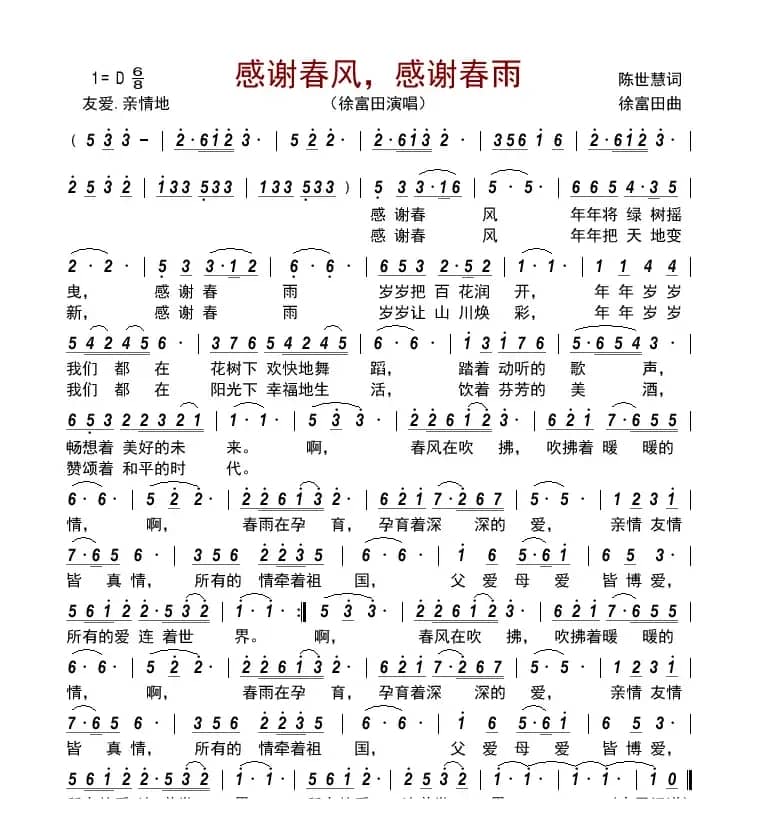 1=D 6/8 感谢春风，感谢春雨 陈世慧词
友爱.亲情地 （徐富田演唱） 徐富田曲
( 5 3 3 - | 2·612 3· | 5 2 2· | 2·613 2· | 356 1 6 | 2·612 3· |
2 5 3 2 | 133 533 | 133 533 ) | 5 3 3·16 | 5· 5· | 6 6 5 4·3 5 |
感 谢春 风 年年将 绿 树摇
感 谢春 风 年年把 天 地变
2· 2· | 5 3 3·1 2 | 6· 6· | 6 5 3 2·5 2 | 1· 1· | 1 1 4 4 |
曳， 感 谢 春 雨 岁岁把 百 花润 开， 年 年 岁 岁
新， 感 谢 春 雨 岁岁让 山 川焕 彩， 年 年 岁 岁
5 4 2 4 5 6· | 3 7 6 5 6 4 2 | 6· 6· | 1 3 1 7 1 | 5·6 5 4 3· |
我们 都 在 花树下 欢快地舞 蹈， 踏着 动听的 歌 声，
我们 都 在 阳光下 幸福地生 活， 饮着 芬芳的 美 酒，
6 5 3 2 2 3 2 1 | 1· 1· | 5 3 3· | 2 2 6 1 2 3· | 6 2 1 7·6 5 5 |
畅想着 美好的未 来。 啊， 春风在吹 拂， 吹拂着 暖 暖的
赞颂着 和平的时 代。
6· 6· | 5 2 2· | 2 2 6 1 3 2· | 6 2 1 7·2 6 7 | 5· 5· | 1 2 3 1 |
情， 啊， 春雨在孕 育， 孕育着深 深的 爱， 亲情 友情
7·6 5 5· | 3 5 6 2 2 3 5 | 6· 6· | 1 6 5 6 1 | 6 5 2 3· |
皆 真 情， 所有的 情牵着祖 国， 父 爱 母 爱 皆 博 爱，
5 6 1 2 2·5 3 2 | 1· 1· :| 5 3 3· | 2 2 6 1 2 3· | 6 2 1 7·6 5 5 |
所有的爱 连 着世 界。 啊， 春风在吹 拂， 吹拂着暖 暖的
6· 6· | 5 2 2· | 2 2 6 1 3 2· | 6 2 1 7·2 6 7 | 5· 5· | 1 2 3 1 |
情， 啊， 春雨在孕 育， 孕育着深 深的 爱， 亲情 友情
7·6 5 5· | 3 5 6 2 2 3 5 | 6· 6· | 1 6 5 6 1 | 6 5 2 3· |
皆 真 情， 所有的 情牵着祖 国， 父 爱 母 爱 皆 博 爱，
5 6 1 2 2·5 3 2 | 1· 1· | 5 6 1 2 2·5 3 2 | 1· 1· | 1· 1· | 1 0 ||